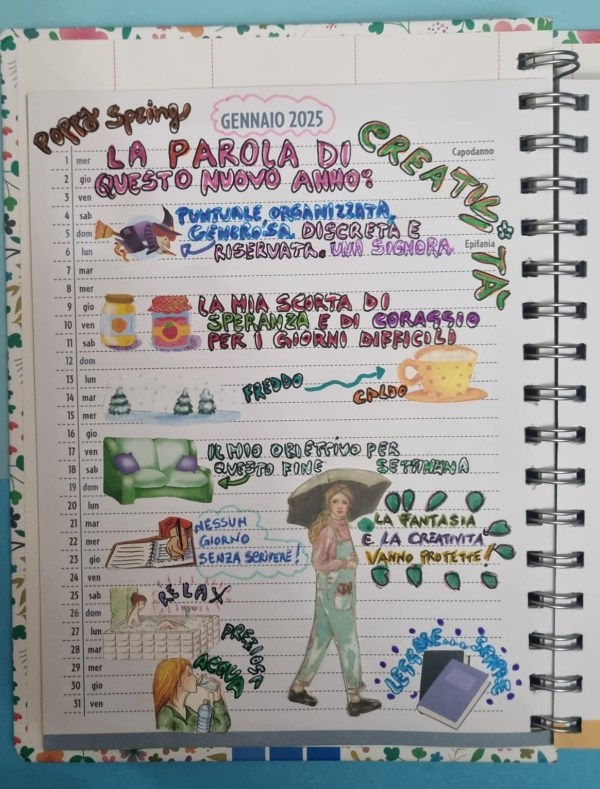 Poppy Spring
GENNAIO 2025
1 mer LA PAROLA DI Capodanno
2 gio QUESTO NUOVO ANNO:
CREATIVITÀ
3 ven
4 sab PUNTUALE, ORGANIZZATA,
5 dom GENEROSA. DISCRETA E
6 lun RISERVATA. UNA SIGNORA Epifania
7 mar
8 mer
9 gio LA MIA SCORTA DI
10 ven SPERANZA E DI CORAGGIO
11 sab PER I GIORNI DIFFICILI
12 dom
13 lun FREDDO
14 mar CALDO
15 mer
16 gio
17 ven IL MIO OBIETTIVO PER
18 sab QUESTO FINE SETTIMANA
19 dom
20 lun
21 mar NESSUN LA FANTASIA
22 mer GIORNO E LA CREATIVITÀ
23 gio SENZA SCRIVERE! VANNO PROTETTE!
24 ven
25 sab RELAX
26 dom
27 lun PREZIOSA
28 mar ACQUA
29 mer LEGGERE... SEMPRE
30 gio
31 ven